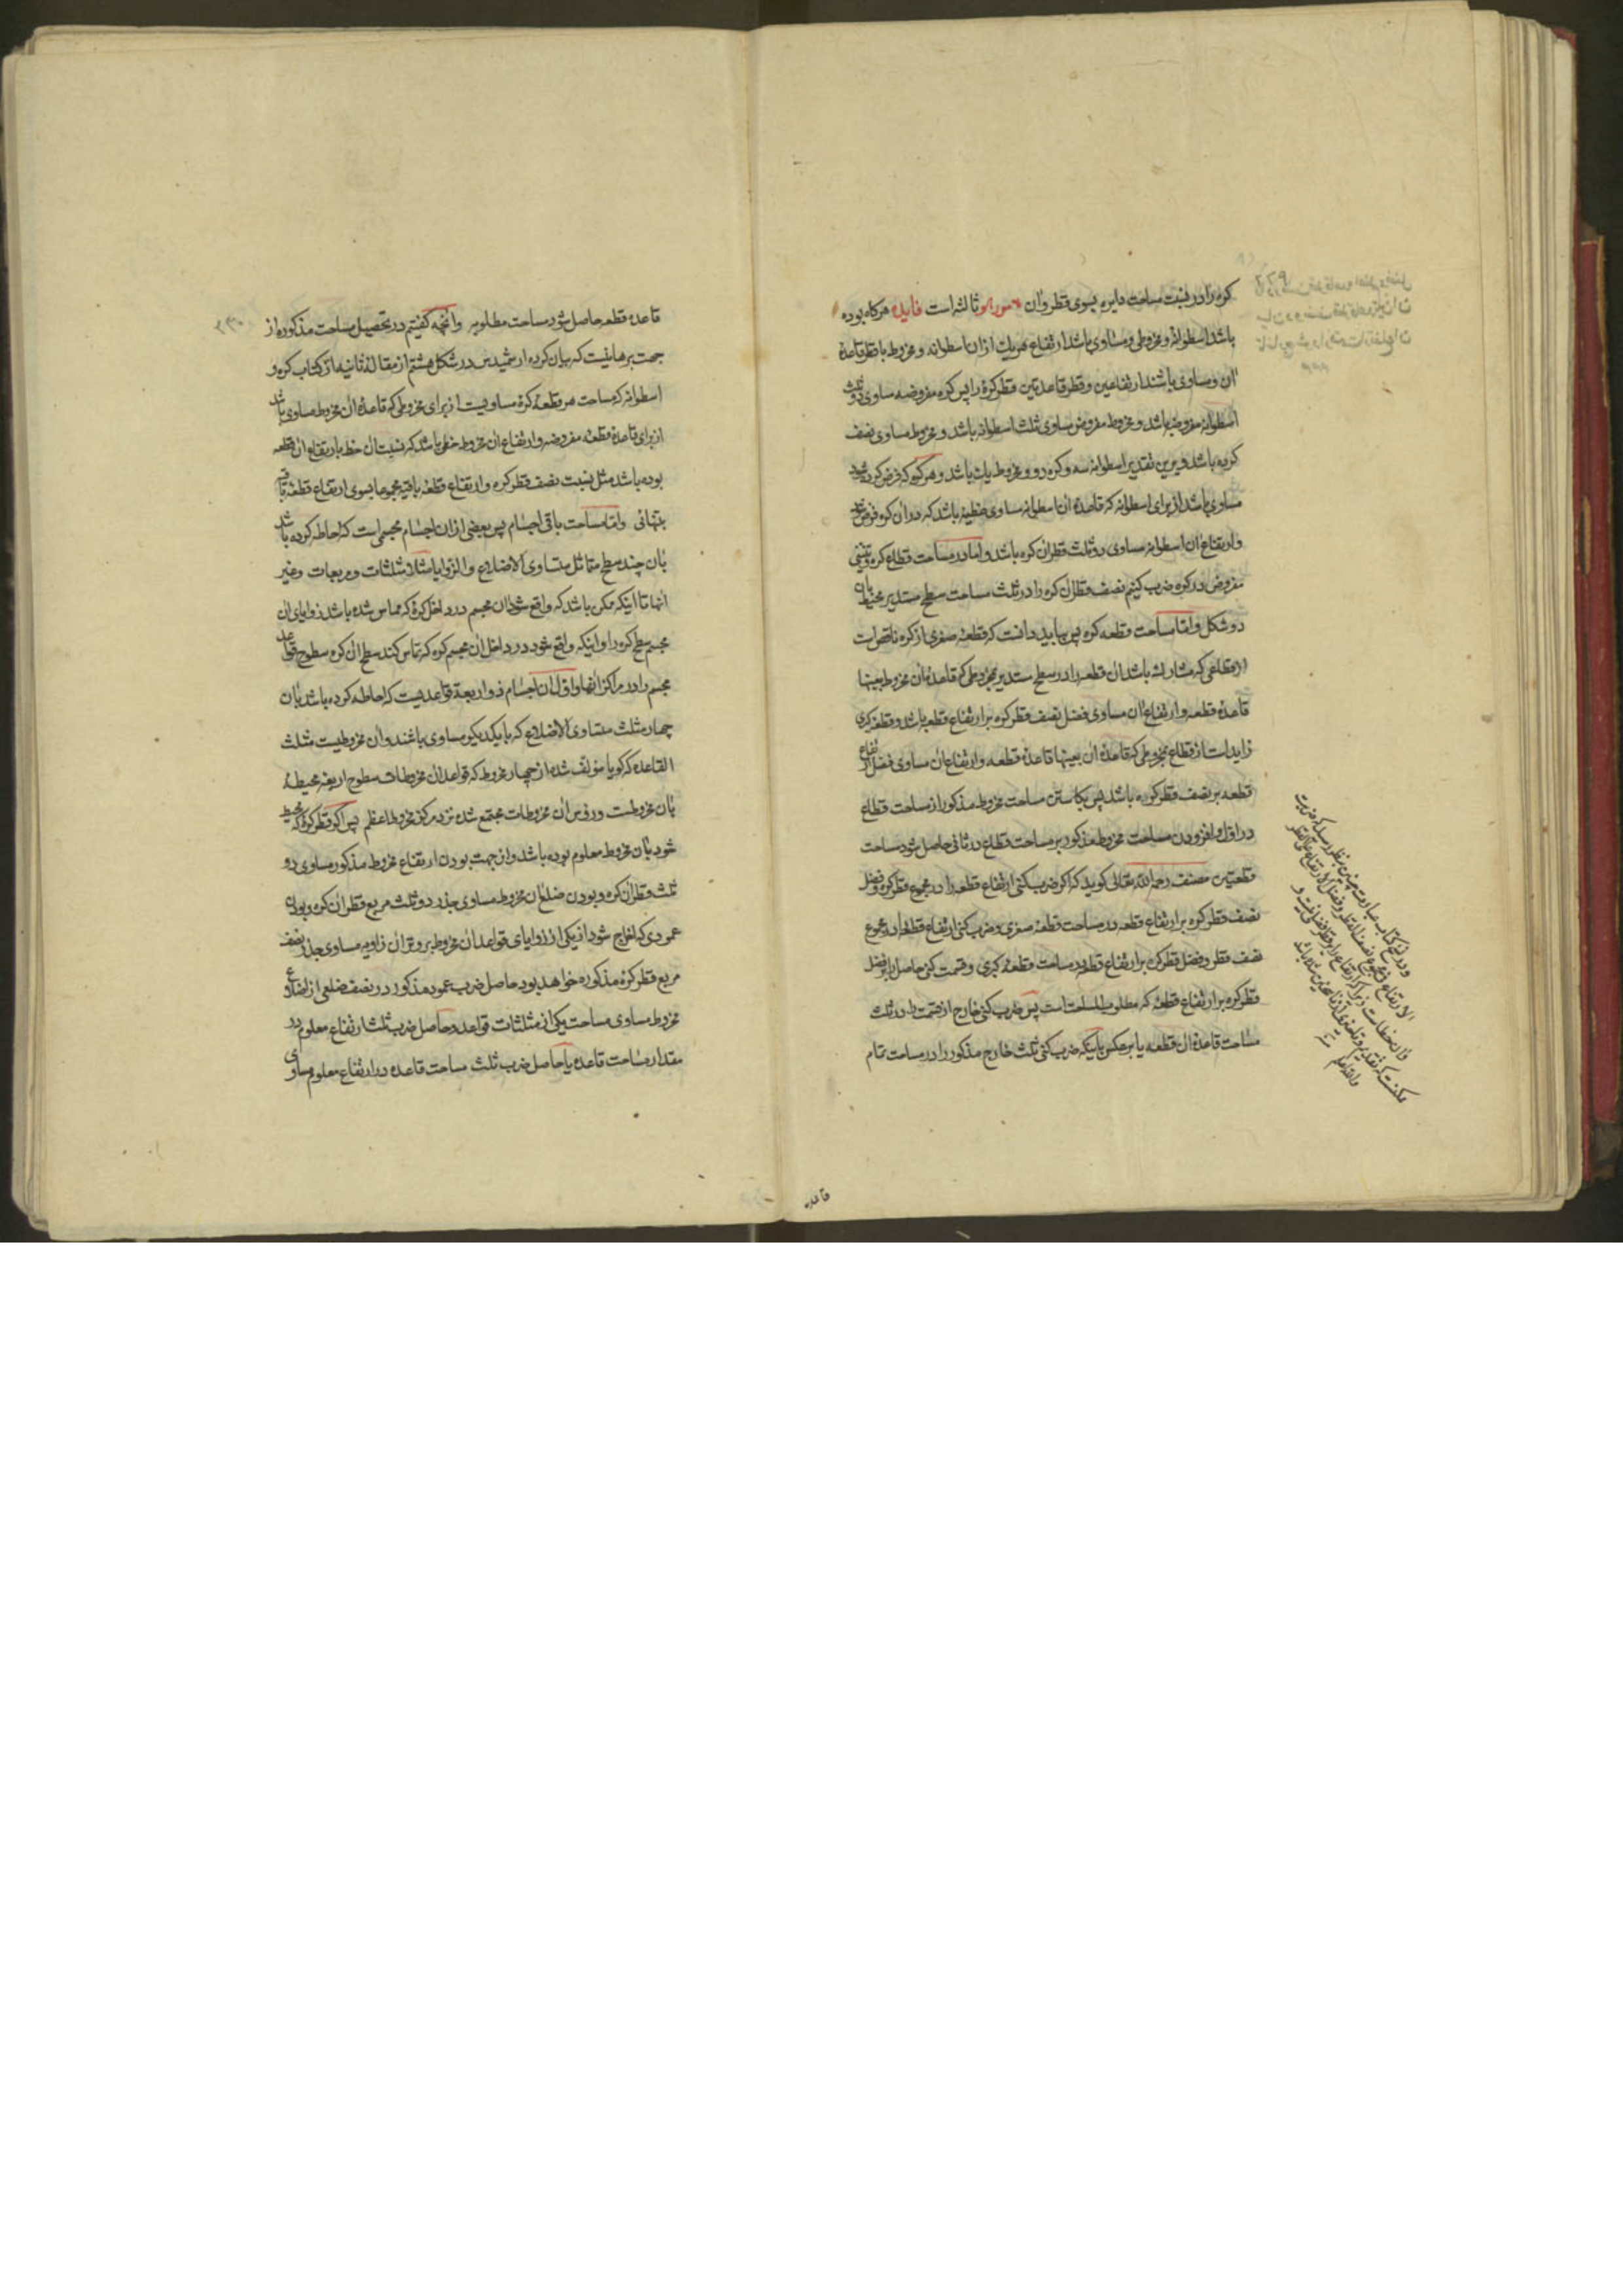 کره را در نسبت مساحت دایره بسوی قطر وآن ثالثه است فایده هرکاه بوده
باشد اسطوانهٔ و مخروطی و مساوی باشد ارتفاع هریك ازان اسطوانه و مخروط با قطر قاعدهٔ
آن و مساوی باشند ارتفاعین و قطر قاعدتین قطر کرهٔ را پس کره مفروضه مساوی دو ثلث
اسطوانه مفروضه باشد و مخروط مفروض مساوی ثلث اسطوانه باشد و مخروط مساوی نصف
کره باشد و برین تقدیر اسطوانه سه و کره دو و مخروط یك باشد و هر کره که فرض کرده شود
مساوی باشد از برای اسطوانهٔ که قاعدهٔ آن اسطوانه مساوی عظیمهٔ باشد که در آن کره فرض شد
و ارتفاع آن اسطوانه مساوی دو ثلث قطر آن کره باشد و اما در مساحت قطاع کره
مفروض در کره ضرب کنیم نصف قطر آن کره را در ثلث مساحت سطح مستدیر محیط بان
دو شکل و اما مساحت قطعه کره پس بباید دانست که قطعهٔ صغری از کره ناقص است
از قطاعی که مشارك باشد آن قطعه را در سطح مستدیر بمخروطی که قاعدهٔ آن مخروط بعینها
قاعدهٔ قطعه و ارتفاع آن مساوی فضل نصف قطر کره بر ارتفاع قطعه باشد و قطعهٔ کبری
زاید است از قطاع بمخروطی که قاعدهٔ آن بعینها قاعدهٔ قطعه و ارتفاع آن مساوی فضل ارتفاع
قطعه بر نصف قطر کره باشد پس بکاستن مساحت مخروط مذکور از مساحت قطاع
در اول و افزودن مساحت مخروط مذکور بر مساحت قطاع در ثانی حاصل شود مساحت
قطعتین مصنف رحمه الله تعالی کوید که اکر ضرب کنی ارتفاع قطعه را در مجموع قطر کره و فضل
نصف قطر کره بر ارتفاع قطعه در مساحت قطعهٔ صغری و ضرب کنی ارتفاع قطعه را در مجموع
نصف قطر و فضل قطر کره بر ارتفاع قطعه در مساحت قطعهٔ کبری و قسمت کنی حاصل را بر فضل
قطر کره بر ارتفاع قطعهٔ که مطلوب المساحت است پس ضرب کنی خارج از قسمت را در ثلث
مساحت قاعدهٔ آن قطعه یا بر عکس باینکه ضرب کنی ثلث خارج مذکور را در مساحت تمام
قاعدهٔ
قاعدهٔ قطعه حاصل شود مساحت مطلوبه وانچه کفتیم در تحصیل مساحت مذکوره از
جهت برهانیست که بیان کرده ارشمیدس در شکل هشتم از مقالهٔ ثانیه از کتاب کره و
اسطوانه که مساحت هر قطعهٔ کرهٔ مساویست از برای مخروطی که قاعدهٔ آن مخروط مساوی باشد
از برای قاعدهٔ قطعهٔ مفروضه و ارتفاع آن مخروط خطی باشد که نسبت آن خط بارتفاع آن قطعه
بوده باشد مثل نسبت نصف قطر کره و ارتفاع قطعهٔ باقیه مجموعا بسوی ارتفاع قطعهٔ باقیه
بتنهائی و اما مساحت باقی اجسام پس بعضی ازان اجسام مجسمی است که احاطه کرده باشد
بان چند سطح متماثل متساوی الاضلاع و الزوایا مثلا مثلثات و مربعات و غیر
آنها تا اینکه ممکن باشد که واقع شود آن مجسم در داخل کرهٔ که مماس شده باشد زوایای آن
مجسم سطح کره را و اینکه واقع شود در داخل آن مجسم کره که تماس کند سطح آن کره سطوح قواعد
مجسم را در مراکز آنها و اول آن اجسام ذو اربعة قواعدیست که احاطه کرده باشد بان
چهار مثلث متساوی الاضلاع که با یکدیکر مساوی باشند و آن مخروطیست مثلث
القاعده که کویا مؤلف شده از چهار مخروط که قواعد آن مخروطات سطوح اربعهٔ محیطهٔ
بان مخروطست و رؤس آن مخروطات مجتمع شده نزد مرکز مخروط اعظم پس اکر قطر کرهٔ که محیط
شود بان مخروط معلوم بوده باشد و از جهت بودن ارتفاع مخروط مذکور مساوی دو
ثلث قطر آن کره و بودن ضلع آن مخروط مساوی جذر دو ثلث مربع قطر آن کره و بودن
عمودی که اخراج شود از یکی از زوایای قواعد آن مخروط بر وتر آن زاویه مساوی جذر نصف
مربع قطر کرهٔ مذکوره خواهد بود حاصل ضرب عمود مذکور در نصف ضلعی از اضلاع
مخروط مساوی مساحت یکی از مثلثات قواعد و حاصل ضرب ثلث ارتفاع معلوم در
مقدار مساحت قاعده یا حاصل ضرب ثلث مساحت قاعده در ارتفاع معلوم مساوی